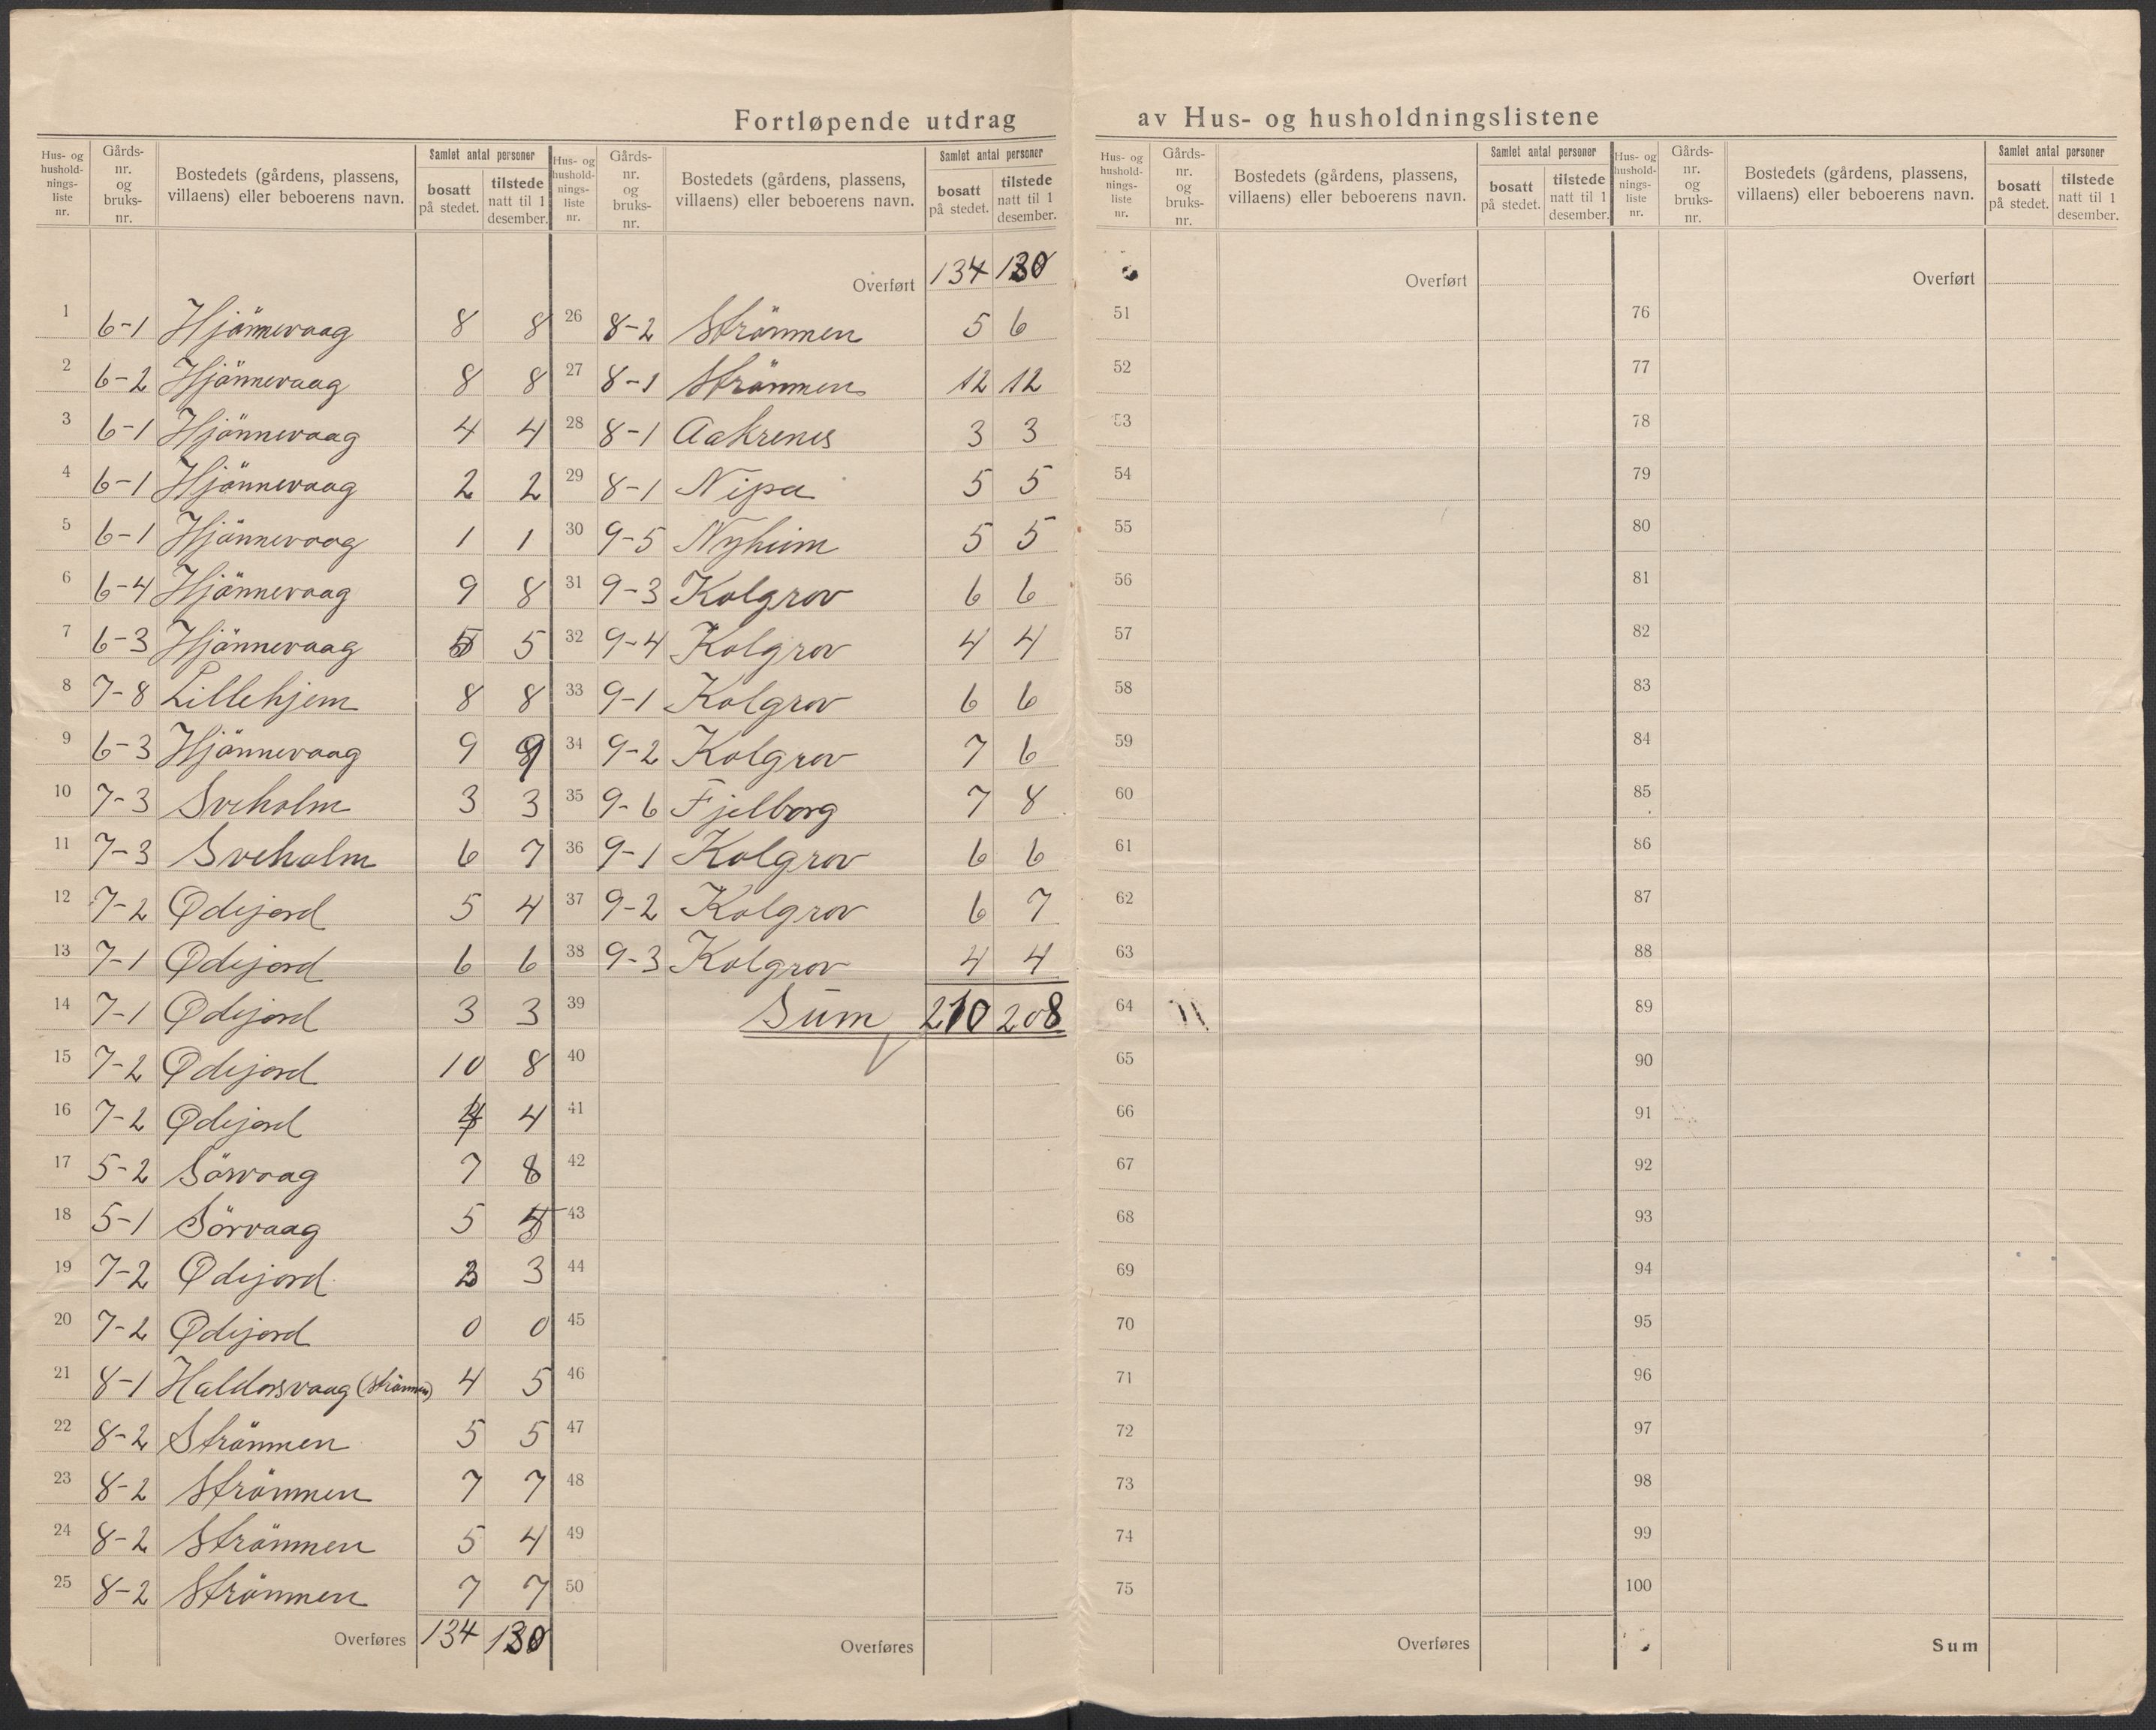 Fortløpende utdrag av Hus- og husholdningslistene
Hus- og hushold-nings-liste nr. Gårds-nr. og bruks-nr. Bostedets (gårdens, plassens, villaens) eller beboerens navn. Samlet antal personer bosatt på stedet. tilstede natt til 1 desember.
1 6-1 Hjönnevaag 8 8
2 6-2 Hjönnevaag 8 8
3 6-1 Hjönnevaag 4 4
4 6-1 Hjönnevaag 2 2
5 6-1 Hjönnevaag 1 1
6 6-4 Hjönnevaag 9 8
7 6-3 Hjönnevaag 5 5
8 7-8 Lillehjem 8 8
9 6-3 Hjönnevaag 9 9
10 7-3 Sveholm 3 3
11 7-3 Sveholm 6 7
12 7-2 Ødejord 5 4
13 7-1 Ødejord 6 6
14 7-1 Ødejord 3 3
15 7-2 Ødejord 10 8
16 7-2 Ødejord 4
17 5-2 Sörvaag 7 8
18 5-1 Sörvaag 5
19 7-2 Ødejord 3
20 7-2 Ødejord 0 0
21 8-1 Haldorsvaag (Strömmen) 4 5
22 8-2 Strömmen 5 5
23 8-2 Strömmen 7 7
24 8-2 Strömmen 5 4
25 8-2 Strömmen 7 7
Overføres 134 130
Hus- og hushold-nings-liste nr. Gårds-nr. og bruks-nr. Bostedets (gårdens, plassens, villaens) eller beboerens navn. Samlet antal personer bosatt på stedet. tilstede natt til 1 desember.
Overført 134 130
26 8-2 Strömmen 5 6
27 8-1 Strömmen 12 12
28 8-1 Aakrenes 3 3
29 8-1 Nipa 5 5
30 9-5 Nyheim 5 5
31 9-3 Kolgrov 6 6
32 9-4 Kolgrov 4 4
33 9-1 Kolgrov 6 6
34 9-2 Kolgrov 7 6
35 9-6 Fjelborg 7 8
36 9-1 Kolgrov 6 6
37 9-2 Kolgrov 6 7
38 9-3 Kolgrov 4 4
39 Sum 210 208
40
41
42
43
44
45
46
47
48
49
50
Overføres
Hus- og hushold-nings-liste nr. Gårds-nr. og bruks-nr. Bostedets (gårdens, plassens, villaens) eller beboerens navn. Samlet antal personer bosatt på stedet. tilstede natt til 1 desember.
Overført
51
52
53
54
55
56
57
58
59
60
61
62
63
64
65
66
67
68
69
70
71
72
73
74
75
Overføres
Hus- og hushold-nings-liste nr. Gårds-nr. og bruks-nr. Bostedets (gårdens, plassens, villaens) eller beboerens navn. Samlet antal personer bosatt på stedet. tilstede natt til 1 desember.
Overført
76
77
78
79
80
81
82
83
84
85
86
87
88
89
90
91
92
93
94
95
96
97
98
99
100
Sum